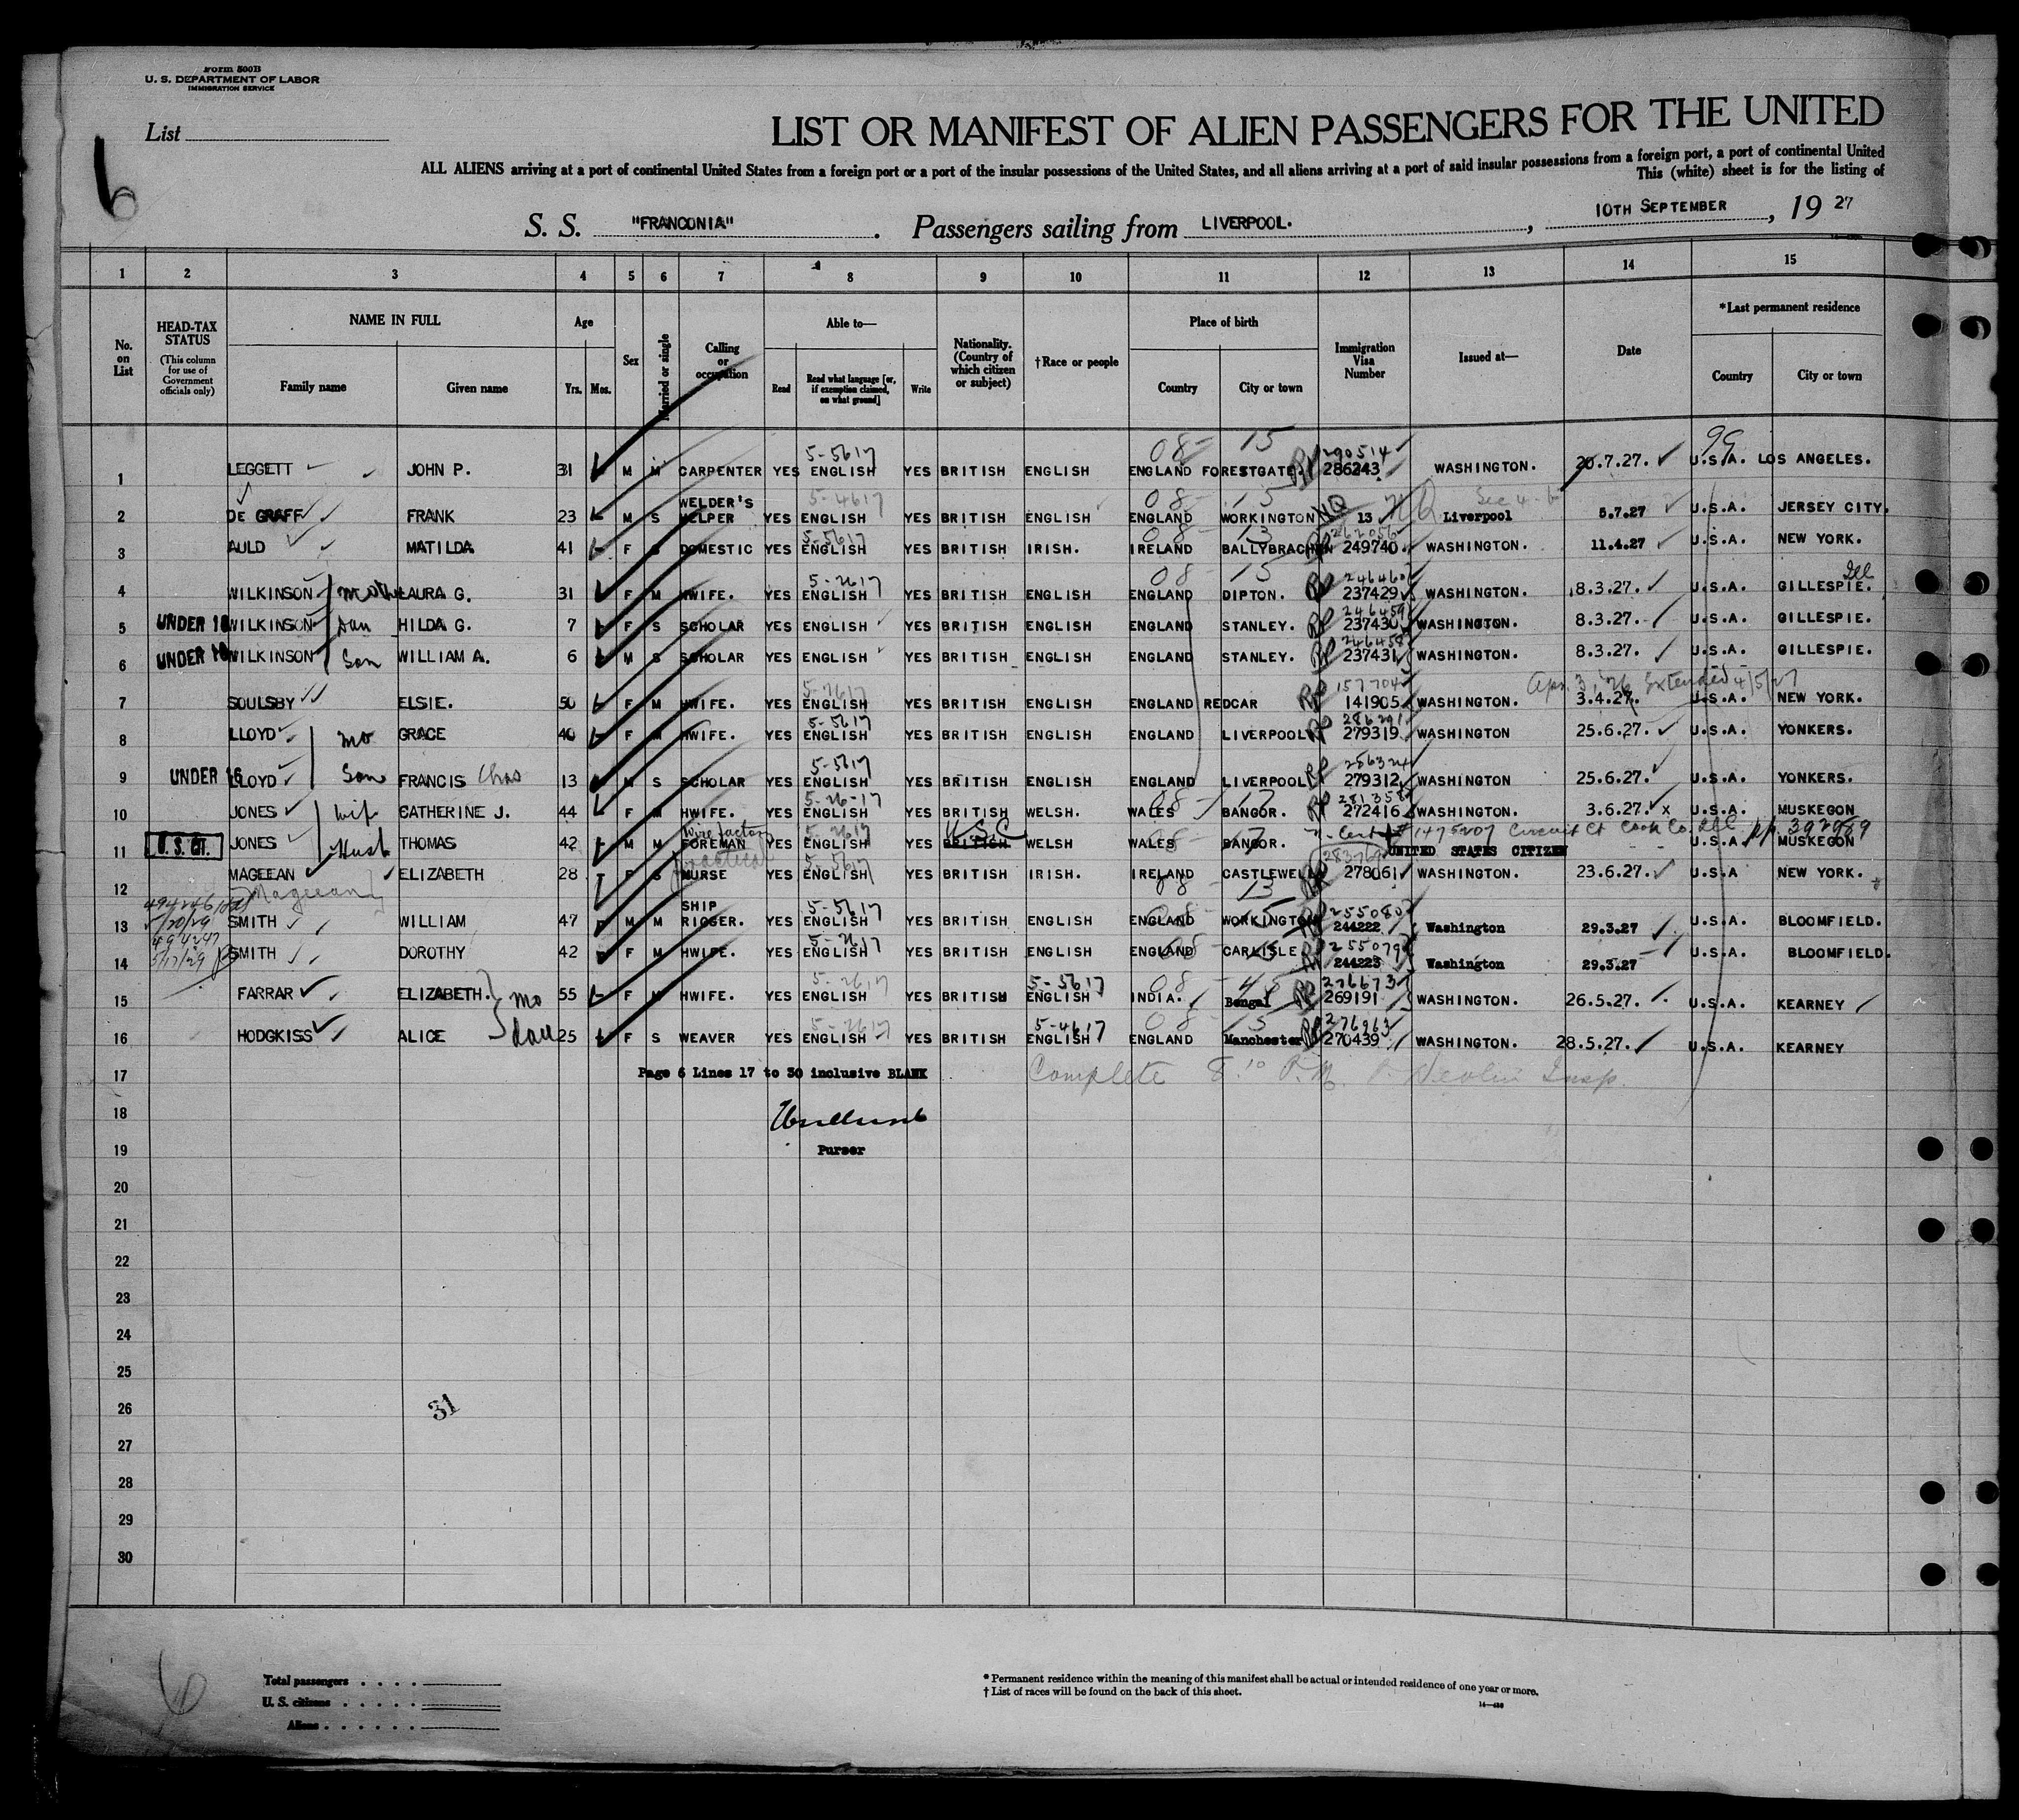 Form 500B
U. S. DEPARTMENT OF LABOR
IMMIGRATION SERVICE
List
6
LIST OR MANIFEST OF ALIEN PASSENGERS FOR THE UNITED
ALL ALIENS arriving at a port of continental United States from a foreign port or a port of the insular possessions of the United States, and all aliens arriving at a port of said insular possessions from a foreign port, a port of continental United
This (white) sheet is for the listing of
S. S. "FRANCONIA". Passengers sailing from LIVERPOOL. , 10TH SEPTEMBER , 19 27
1 2 3 4 5 6 7 8 9 10 11 12 13 14 15
No. on List
HEAD-TAX STATUS (This column for use of Government officials only)
NAME IN FULL
Family name Given name
Age
Yrs. Mos.
Sex
Married or single
Calling or occupation
Able to—
Read Read what language [or, if exemption claimed, on what ground] Write
Nationality. (Country of which citizen or subject)
†Race or people
Place of birth
Country City or town
Immigration Visa Number
Issued at—
Date
*Last permanent residence
Country City or town
08- 15 99
5-5617 290514
1 LEGGETT JOHN P. 31 M M CARPENTER YES ENGLISH YES BRITISH ENGLISH ENGLAND FORESTGATE. 286243 WASHINGTON. 20.7.27. U.S.A. LOS ANGELES.
5-4617 08- 15 NQ
2 DE GRAFF FRANK 23 M S WELDER'S HELPER YES ENGLISH YES BRITISH ENGLISH ENGLAND WORKINGTON 13 Liverpool 5.7.27 U.S.A. JERSEY CITY.
5-5617 08- 13
3 AULD MATILDA 41 F S DOMESTIC YES ENGLISH YES BRITISH IRISH. IRELAND BALLYBRACHEN 249740 WASHINGTON. 11.4.27 U.S.A. NEW YORK.
5-2617 08- 15 246460 Ill
4 WILKINSON Mother LAURA G. 31 F M HWIFE. YES ENGLISH YES BRITISH ENGLISH ENGLAND DIPTON. 237429 WASHINGTON. 8.3.27. U.S.A. GILLESPIE.
246459
5 UNDER 16 WILKINSON Dau HILDA G. 7 F S SCHOLAR YES ENGLISH YES BRITISH ENGLISH ENGLAND STANLEY. 237430 WASHINGTON. 8.3.27. U.S.A. GILLESPIE.
246458
6 UNDER 16 WILKINSON Son WILLIAM A. 6 M S SCHOLAR YES ENGLISH YES BRITISH ENGLISH ENGLAND STANLEY. 237431 WASHINGTON. 8.3.27. U.S.A. GILLESPIE.
5-2617 157704 Apr. 3, '26 Extended 4/5/27
7 SOULSBY ELSIE. 50 F M HWIFE. YES ENGLISH YES BRITISH ENGLISH ENGLAND REDCAR 141905 WASHINGTON. 3.4.27. U.S.A. NEW YORK.
5-5617
8 LLOYD Mo GRACE 40 F M HWIFE. YES ENGLISH YES BRITISH ENGLISH ENGLAND LIVERPOOL 279319 WASHINGTON 25.6.27. U.S.A. YONKERS.
5-5617 286324
9 UNDER 16 LLOYD Son FRANCIS Chas 13 M S SCHOLAR YES ENGLISH YES BRITISH ENGLISH ENGLAND LIVERPOOL 279312 WASHINGTON 25.6.27. U.S.A. YONKERS.
5-26-17 08- 17 281358
10 JONES Wife CATHERINE J. 44 F M HWIFE. YES ENGLISH YES BRITISH WELSH. WALES BANGOR. 272416 WASHINGTON. 3.6.27. x U.S.A. MUSKEGON
Wire factory 5-2617 USC # 1475207 Circuit Ct Cook Co. Ill pp. 392989
11 U. S. CIT. JONES Husb THOMAS 42 M M FOREMAN YES ENGLISH YES BRITISH WELSH WALES BANGOR. UNITED STATES CITIZEN U.S.A. MUSKEGON
practical 5-5617 283769
12 MAGEEAN ELIZABETH 28 F S NURSE YES ENGLISH YES BRITISH IRISH. IRELAND CASTLEWELLAN 278061 WASHINGTON. 23.6.27. U.S.A NEW YORK.
Mageean 08- 13
5-5617 255080
13 SMITH WILLIAM 47 M M SHIP RIGGER. YES ENGLISH YES BRITISH ENGLISH ENGLAND WORKINGTON 244222 Washington 29.3.27 U.S.A. BLOOMFIELD.
494247 5/17/29 5-2617 255079
14 SMITH DOROTHY 42 F M HWIFE. YES ENGLISH YES BRITISH ENGLISH ENGLAND CARLISLE 244223 Washington 29.3.27 U.S.A. BLOOMFIELD.
5-2617 5-5617 08- 276673
15 FARRAR ELIZABETH. Mo 55 F M HWIFE. YES ENGLISH YES BRITISH ENGLISH INDIA. Bengal 269191 WASHINGTON. 26.5.27. U.S.A. KEARNEY
5-2617 5-4617 08- 15 276963
16 HODGKISS ALICE dau 25 F S WEAVER YES ENGLISH YES BRITISH ENGLISH ENGLAND Manchester 270439 WASHINGTON. 28.5.27. U.S.A. KEARNEY
17 Page 6 Lines 17 to 30 inclusive BLANK Complete 8.10 P.M. Insp.
18
19 Purser
20
21
22
23
24
25
26 31
27
28
29
30
6
Total passengers
U.S. citizens
Aliens
* Permanent residence within the meaning of this manifest shall be actual or intended residence of one year or more.
† List of races will be found on the back of this sheet.